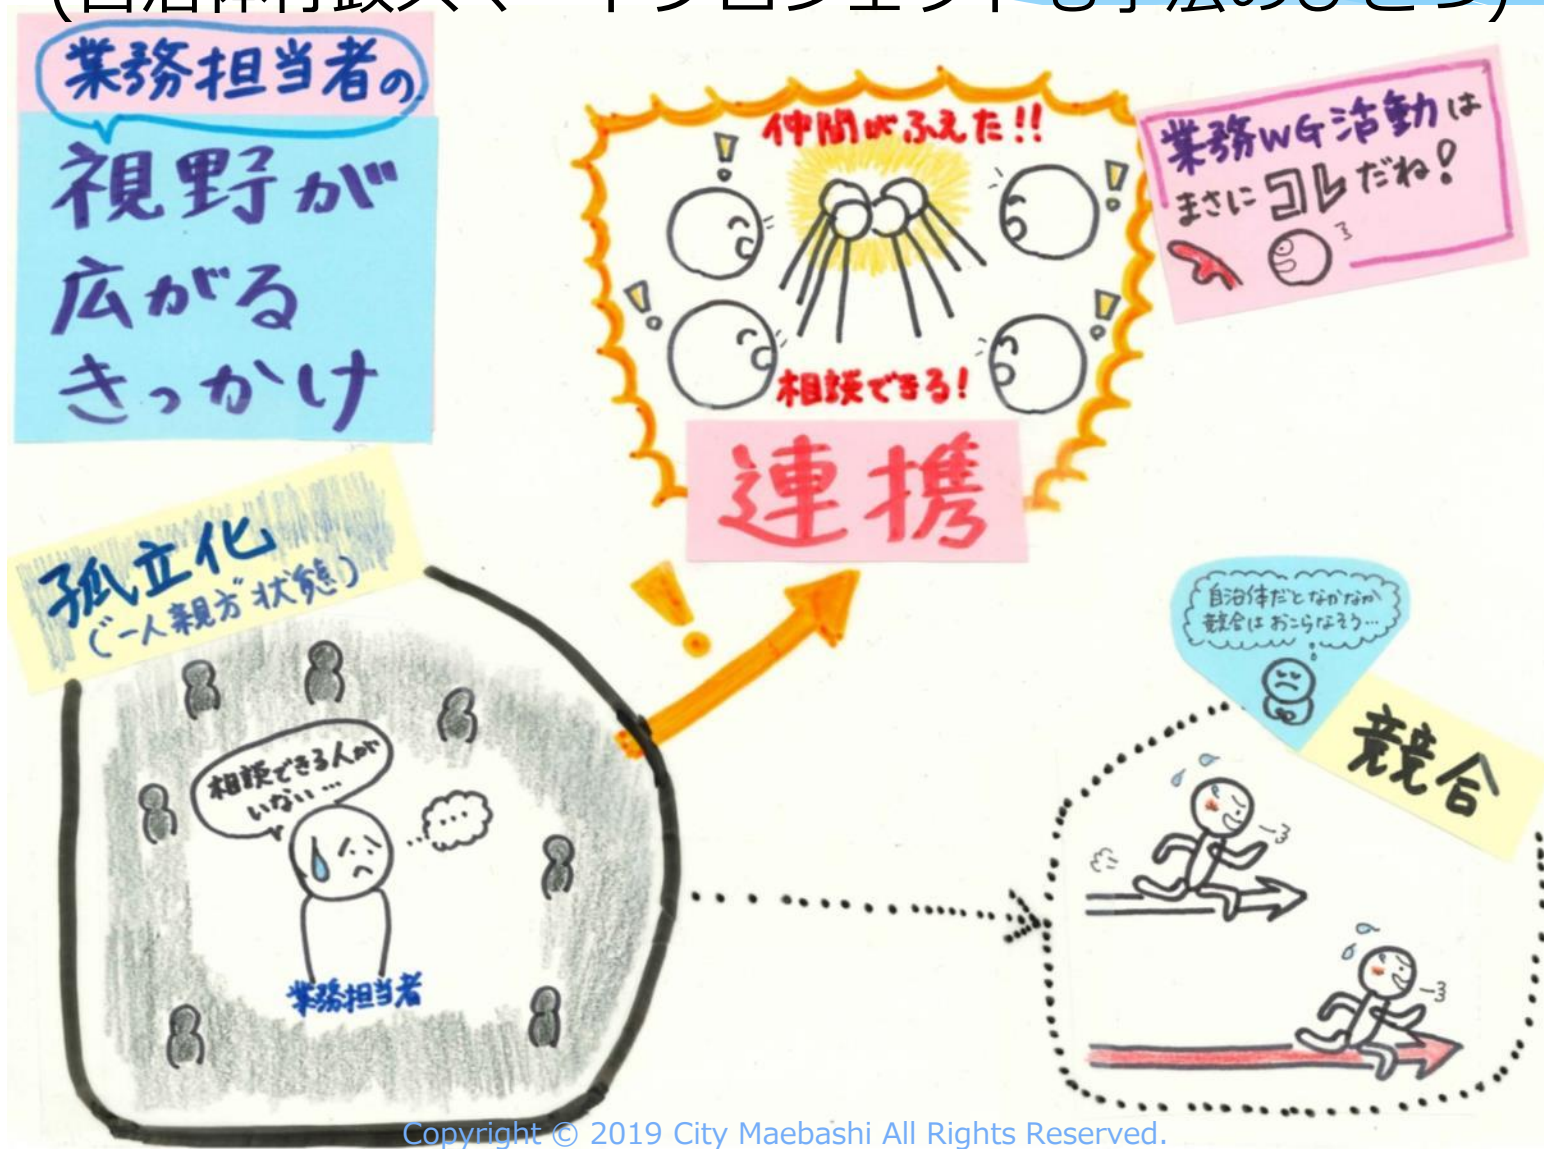 (自治体行政スマートプロジェクトも手法のひとつ)
業務担当者の
視野が
広がる
きっかけ
仲間がふえた!!
相談できる!
連携
業務WG活動は
まさにコレだね!
孤立化
(一人親方状態)
相談できる人が
いない…
業務担当者
自治体だとなかなか
競合はおこらなそう…
競合
Copyright © 2019 City Maebashi All Rights Reserved.